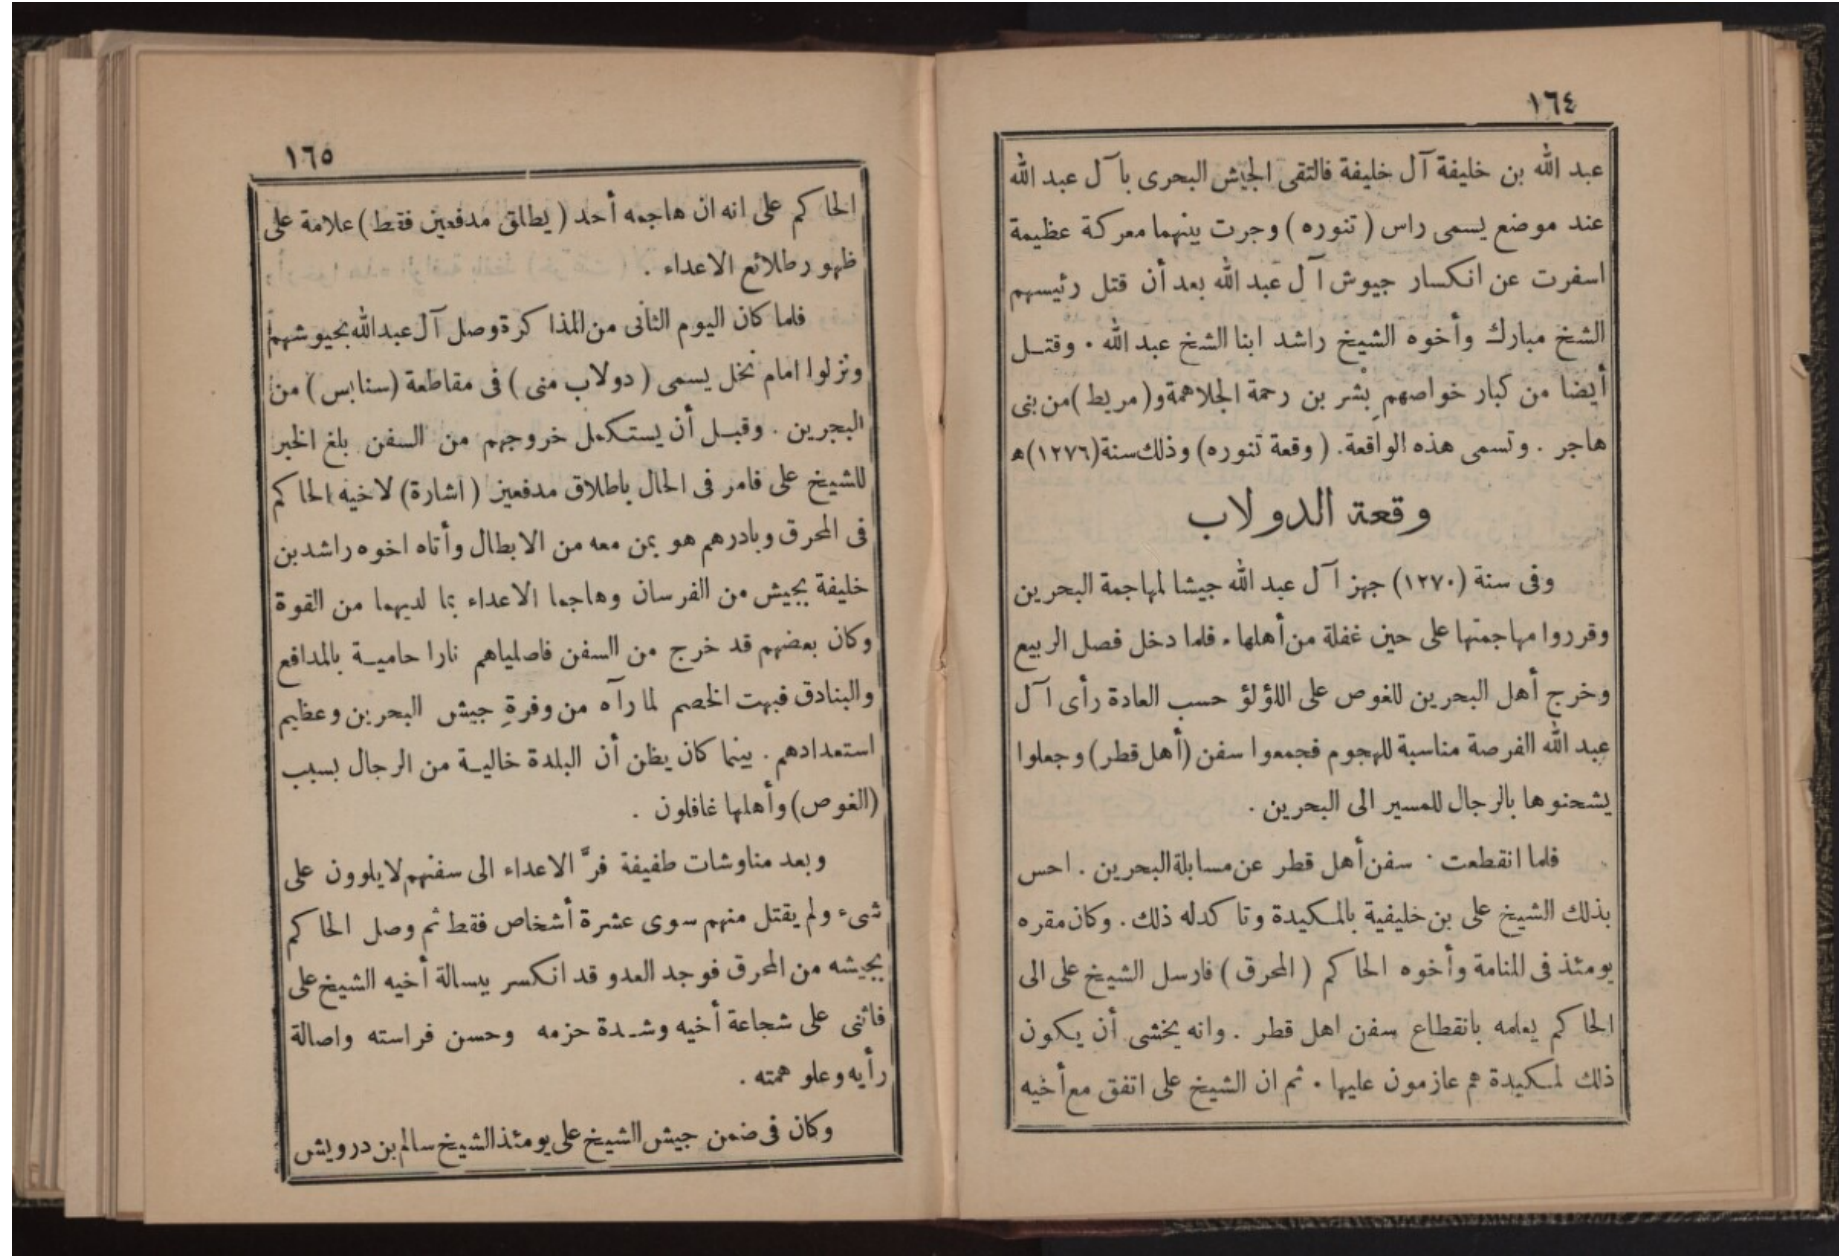 ١٦٤
عبد الله بن خليفة آل خليفة فالتقى الجيش البحرى بآل عبد الله
عند موضع يسمى راس ( تنوره ) وجرت بينهما معركة عظيمة
اسفرت عن انكسار جيوش آل عبد الله بعد أن قتل رئيسهم
الشخ مبارك وأخوه الشيخ راشد ابنا الشخ عبد الله . وقتل
أيضا من كبار خواصهم بشر بن رحمة الجلاهمة و( مريط ) من بنى
هاجر . وتسمى هذه الواقعة . ( وقعة تنوره ) وذلك سنة (١٢٧٦) ه
وقعة الدولاب
وفى سنة (١٢٧٠) جهز آل عبد الله جيشا لمهاجمة البحرين
وقرروا مهاجمتها على حين غفلة من أهلها . فلما دخل فصل الربيع
وخرج أهل البحرين للغوص على اللؤلؤ حسب العادة رأى آل
عبد الله الفرصة مناسبة للهجوم فجمعوا سفن (أهل قطر) وجعلوا
يشحنوها بالرجال للمسير الى البحرين .
فلما انقطعت سفن أهل قطر عن مسابلة البحرين . احس
بذلك الشيخ على بن خليفية بالمكيدة وتا كدله ذلك . وكان مقره
يومئذ فى المنامة وأخوه الحاكم ( المحرق ) فارسل الشيخ على الى
الحاكم يعلمه بانقطاع سفن اهل قطر . وانه يخشى أن يكون
ذلك لمكيدة هم عازمون عليها . ثم ان الشيخ على اتفق مع أخيه
١٦٥
الحاكم على انه ان هاجمه أحد ( يطلق مدفعين فقط ) علامة على
ظهور طلائع الاعداء .
فلما كان اليوم الثانى من المذاكرة وصل آل عبد الله بجيوشهم
ونزلوا امام نخل يسمى ( دولاب منى ) فى مقاطعة (سنابس) من
البحرين . وقبل أن يستكمل خروجهم من السفن بلغ الخبر
للشيخ على فامر فى الحال باطلاق مدفعين ( اشارة ) لاخيه الحاكم
فى المحرق وبادرهم هو بمن معه من الابطال وأتاه اخوه راشد بن
خليفة بجيش من الفرسان وهاجما الاعداء بما لديهما من القوة
وكان بعضهم قد خرج من السفن فاصلياهم نارا حامية بالمدافع
والبنادق فبهت الخصم لما رآه من وفرة جيش البحرين وعظيم
استعدادهم . بينما كان يظن أن البلدة خالية من الرجال بسبب
(الغوص) وأهلها غافلون .
وبعد مناوشات طفيفة فرَّ الاعداء الى سفنهم لايلوون على
شىء ولم يقتل منهم سوى عشرة أشخاص فقط ثم وصل الحاكم
بجيشه من المحرق فوجد العدو قد انكسر ببسالة أخيه الشيخ على
فاثنى على شجاعة أخيه وشدة حزمه وحسن فراسته واصالة
رأيه وعلو همته .
وكان فى ضمن جيش الشيخ على يومئذ الشيخ سالم بن درويش